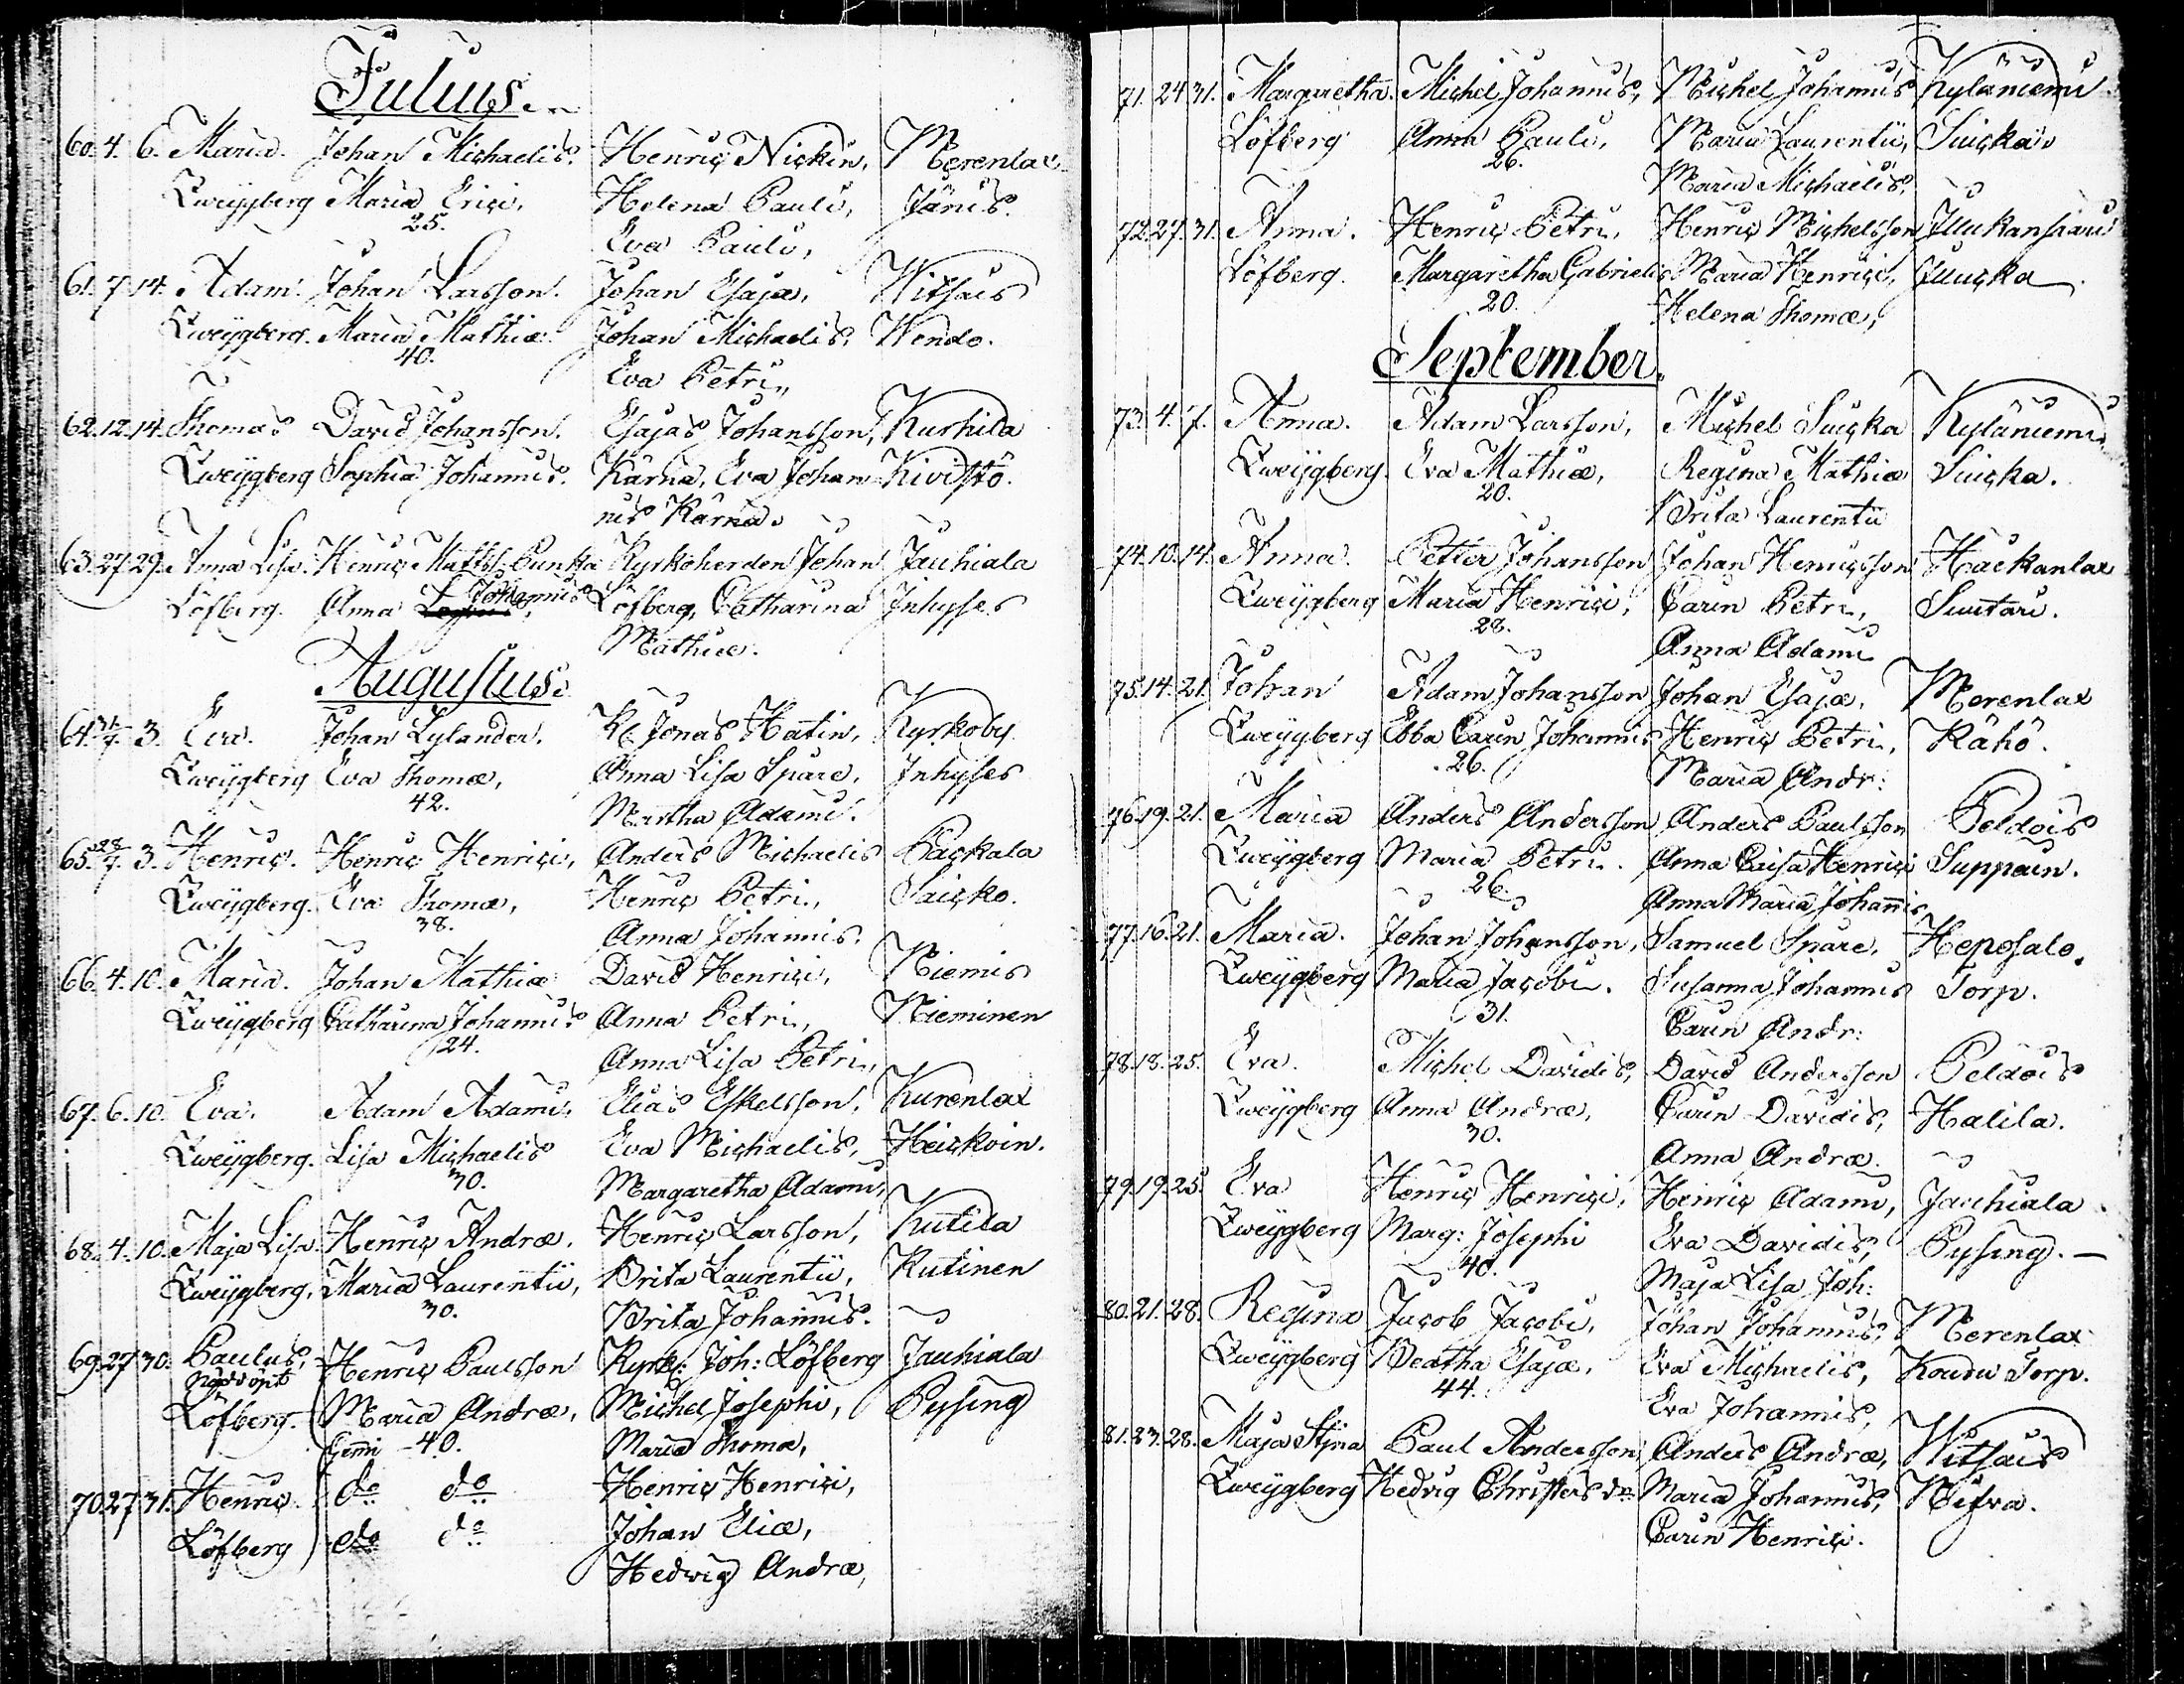 Julius.
60. 4. 6. Maria. Johan Michaelis. Henric Nickin, Merenlax
Zweygberg Maria Erici, Helena Pauli, Jänis.
25. Eva Pauli,
61. 7. 14. Adam. Johan Larsson. Johan Esajæ, Witsais
Zweygberg. Maria Mathiæ. Johan Michaelis. Wendo.
40. Eva Petri,
62. 12. 14. Thomas David Johansson. Esajas Johansson, Kurhila
Zweygberg Sophia Johannis. Kärnä, Eva Johan- Kivistö.
nis Kärnä.
63. 27. 29. Anna Lisa. Henric Matss. Kyrkoherden Johan Jauhiala
Löfberg. Anna Johannis Löfberg, Catharina Inhyses
Mathiæ.
Augustus.
64. 31/7. 3. Eva. Johan Zylander. Kl. Jonas Hatin, Kyrkoby
Zweygberg Eva Thomæ, Anna Lisa Spare, Inhyses
42. Martha Adami.
65. 28/7. 3. Henric. Henric Henrici, Anders Michaelis Packala
Zweygberg. Eva Thomæ, Henric Petri, Saicko.
38. Anna Johannis.
66. 4. 10. Maria. Johan Mathiæ David Henrici, Niemis
Zweygberg Catharina Johannis. Anna Petri, Nieminen
24. Anna Lisa Petri,
67. 6. 10. Eva. Adam Adami. Elias Eskelsson, Kurenlax
Zweygberg. Lisa Michaelis Eva Michaelis, Heickoin.
30. Margaretha Adami,
68. 4. 10. Maja Lisa. Henric Andræ. Henric Larsson, Kutila
Zweygberg. Maria Laurentii, Brita Laurentii, Kutinen
30. Brita Johannis.
69. 27. 30. Paulus, Henric Paulsson Kyrkh. Joh: Löfberg Jauhiala
nöddöpt
Löfberg. Maria Andræ, Michel Josephi, Pysing
Gemi - 40. Maria Thomæ,
70. 27. 31. Henric. do do Henric Henrici,
Löfberg do do Johan Eliæ,
Hedwig Andræ,
71. 24. 31. Margaretha. Michel Johannis, Michel Johannis Kyläniemi
Löfberg Anna Pauli, Maria Laurentii, Suicka.
26. Maria Michaelis.
72. 27. 31. Anna. Henric Petri, Henric Michelsson
Löfberg. Margaretha Gabrielis Maria Henrici,
20. Helena Thomæ,
September.
73. 4. 7. Anna. Adam Larsson, Michel Suicka Kyläniemi.
Zweygberg. Eva Mathiæ, Regina Mathiæ Suicka.
20. Brita Laurentii
74. 10. 14. Anna. Petter Johansson Johan Henricsson Häckanlax
Zweygberg Maria Henrici, Carin Petri, Suutari.
28. Anna Adami
75. 14. 21. Johan Adam Johansson Johan Esajæ, Merenlax
Zweygberg Ebba Carin Johannis Henric Petri, Kähö.
26. Maria Andr:
76. 19. 21. Maria Anders Andersson Anders Paulsson Peldois
Zweygberg Maria Petri. Anna Caisa Henrici Suppoin.
26. Anna Maria Johannis
77. 16. 21. Maria. Johan Johansson, Samuel Spare, Heposalo.
Zweygberg Maria Jacobi. Susanna Johannis Torp.
31. Carin Andr:
78. 18. 25. Eva. Michel Davidis, David Andersson Peldois
Zweygberg Anna Andræ, Carin Davidis, Halila.
30. Anna Andræ.
79. 19. 25. Eva Henric Henrici, Heinric Adami, Jauhiala.
Zweygberg Marg: Josephi Eva Davidis, Pysing.
40. Maja Lisa Joh:
80. 21. 28. Regina Jacob Jacobi, Johan Johannis, Merenlax
Zweygberg Beatha Esajæ, Eva Michaelis, Koudu Torp.
44. Eva Johannis,
81. 23. 28. Maja Stina Paul Andersson Anders Andræ, Witsais
Zweygberg Hedvig Christersdr. Maria Johannis,
Carin Henrici.